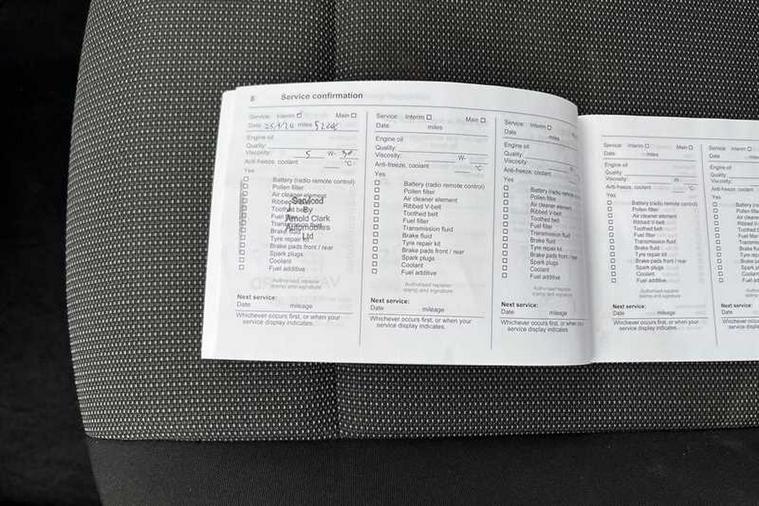 8 Service confirmation
Service: Interim ☑ Main ☐
Date 25/4/24 miles
Engine oil
Quality:
Viscosity: 5 W- 30
Anti-freeze, coolant °C
Yes
☐ Battery (radio remote control)
☐ Pollen filter
☐ Air cleaner element
☐ Ribbed
☐ Toothed belt
☐ Fuel
☐
☐ Brake fluid
☐ Tyre repair kit
☐ Brake pads front / rear
☐ Spark plugs
☐ Coolant
☐ Fuel additive
Serviced
By
Arnold Clark
Automobiles
Ltd
Authorised repairer
stamp and signature
Next service:
Date mileage
Whichever occurs first, or when your
service display indicates.
Service: Interim ☐ Main ☐
Date miles
Engine oil
Quality:
Viscosity: W-
Anti-freeze, coolant °C
Yes
☐ Battery (radio remote control)
☐ Pollen filter
☐ Air cleaner element
☐ Ribbed V-belt
☐ Toothed belt
☐ Fuel filter
☐ Transmission fluid
☐ Brake fluid
☐ Tyre repair kit
☐ Brake pads front / rear
☐ Spark plugs
☐ Coolant
☐ Fuel additive
Authorised repairer
stamp and signature
Next service:
Date mileage
Whichever occurs first, or when your
service display indicates.
Service: Interim ☐
Date miles
Engine oil
Quality:
Viscosity:
Anti-freeze, coolant
Yes
☐ Battery (radio remote
☐ Pollen filter
☐ Air cleaner element
☐ Ribbed V-belt
☐ Toothed belt
☐ Fuel filter
☐ Transmission fluid
☐ Brake fluid
☐ Tyre repair kit
☐ Brake pads front / rear
☐ Spark plugs
☐ Coolant
☐ Fuel additive
Authorised repairer
stamp and signature
Next service:
Date mileage
Whichever occurs first, or when your
service display indicates.
Service: Interim ☐ Main ☐
Date miles
Engine oil
Quality:
Viscosity: W-
Anti-freeze, coolant °C
Yes
☐ Battery (radio remote control)
☐ Pollen filter
☐ Air cleaner element
☐ Ribbed V-belt
☐ Toothed belt
☐ Fuel filter
☐ Transmission fluid
☐ Brake fluid
☐ Tyre repair kit
☐ Brake pads front / rear
☐ Spark plugs
☐ Coolant
☐ Fuel additive
Authorised repairer
stamp and signature
Next service:
Date mileage
Whichever occurs first, or when your
service display indicates.
Service: Interim ☐
Date miles
Engine oil
Quality:
Viscosity:
Anti-freeze, coolant
Yes
☐ Battery (radio
☐ Pollen filter
☐ Air cleaner
☐ Ribbed V-belt
☐ Toothed belt
☐ Fuel filter
☐ Transmission
☐ Brake fluid
☐ Tyre repair kit
☐ Brake pads
☐ Spark plugs
☐ Coolant
☐ Fuel additive
Next service:
Date
Whichever occurs first,
service display